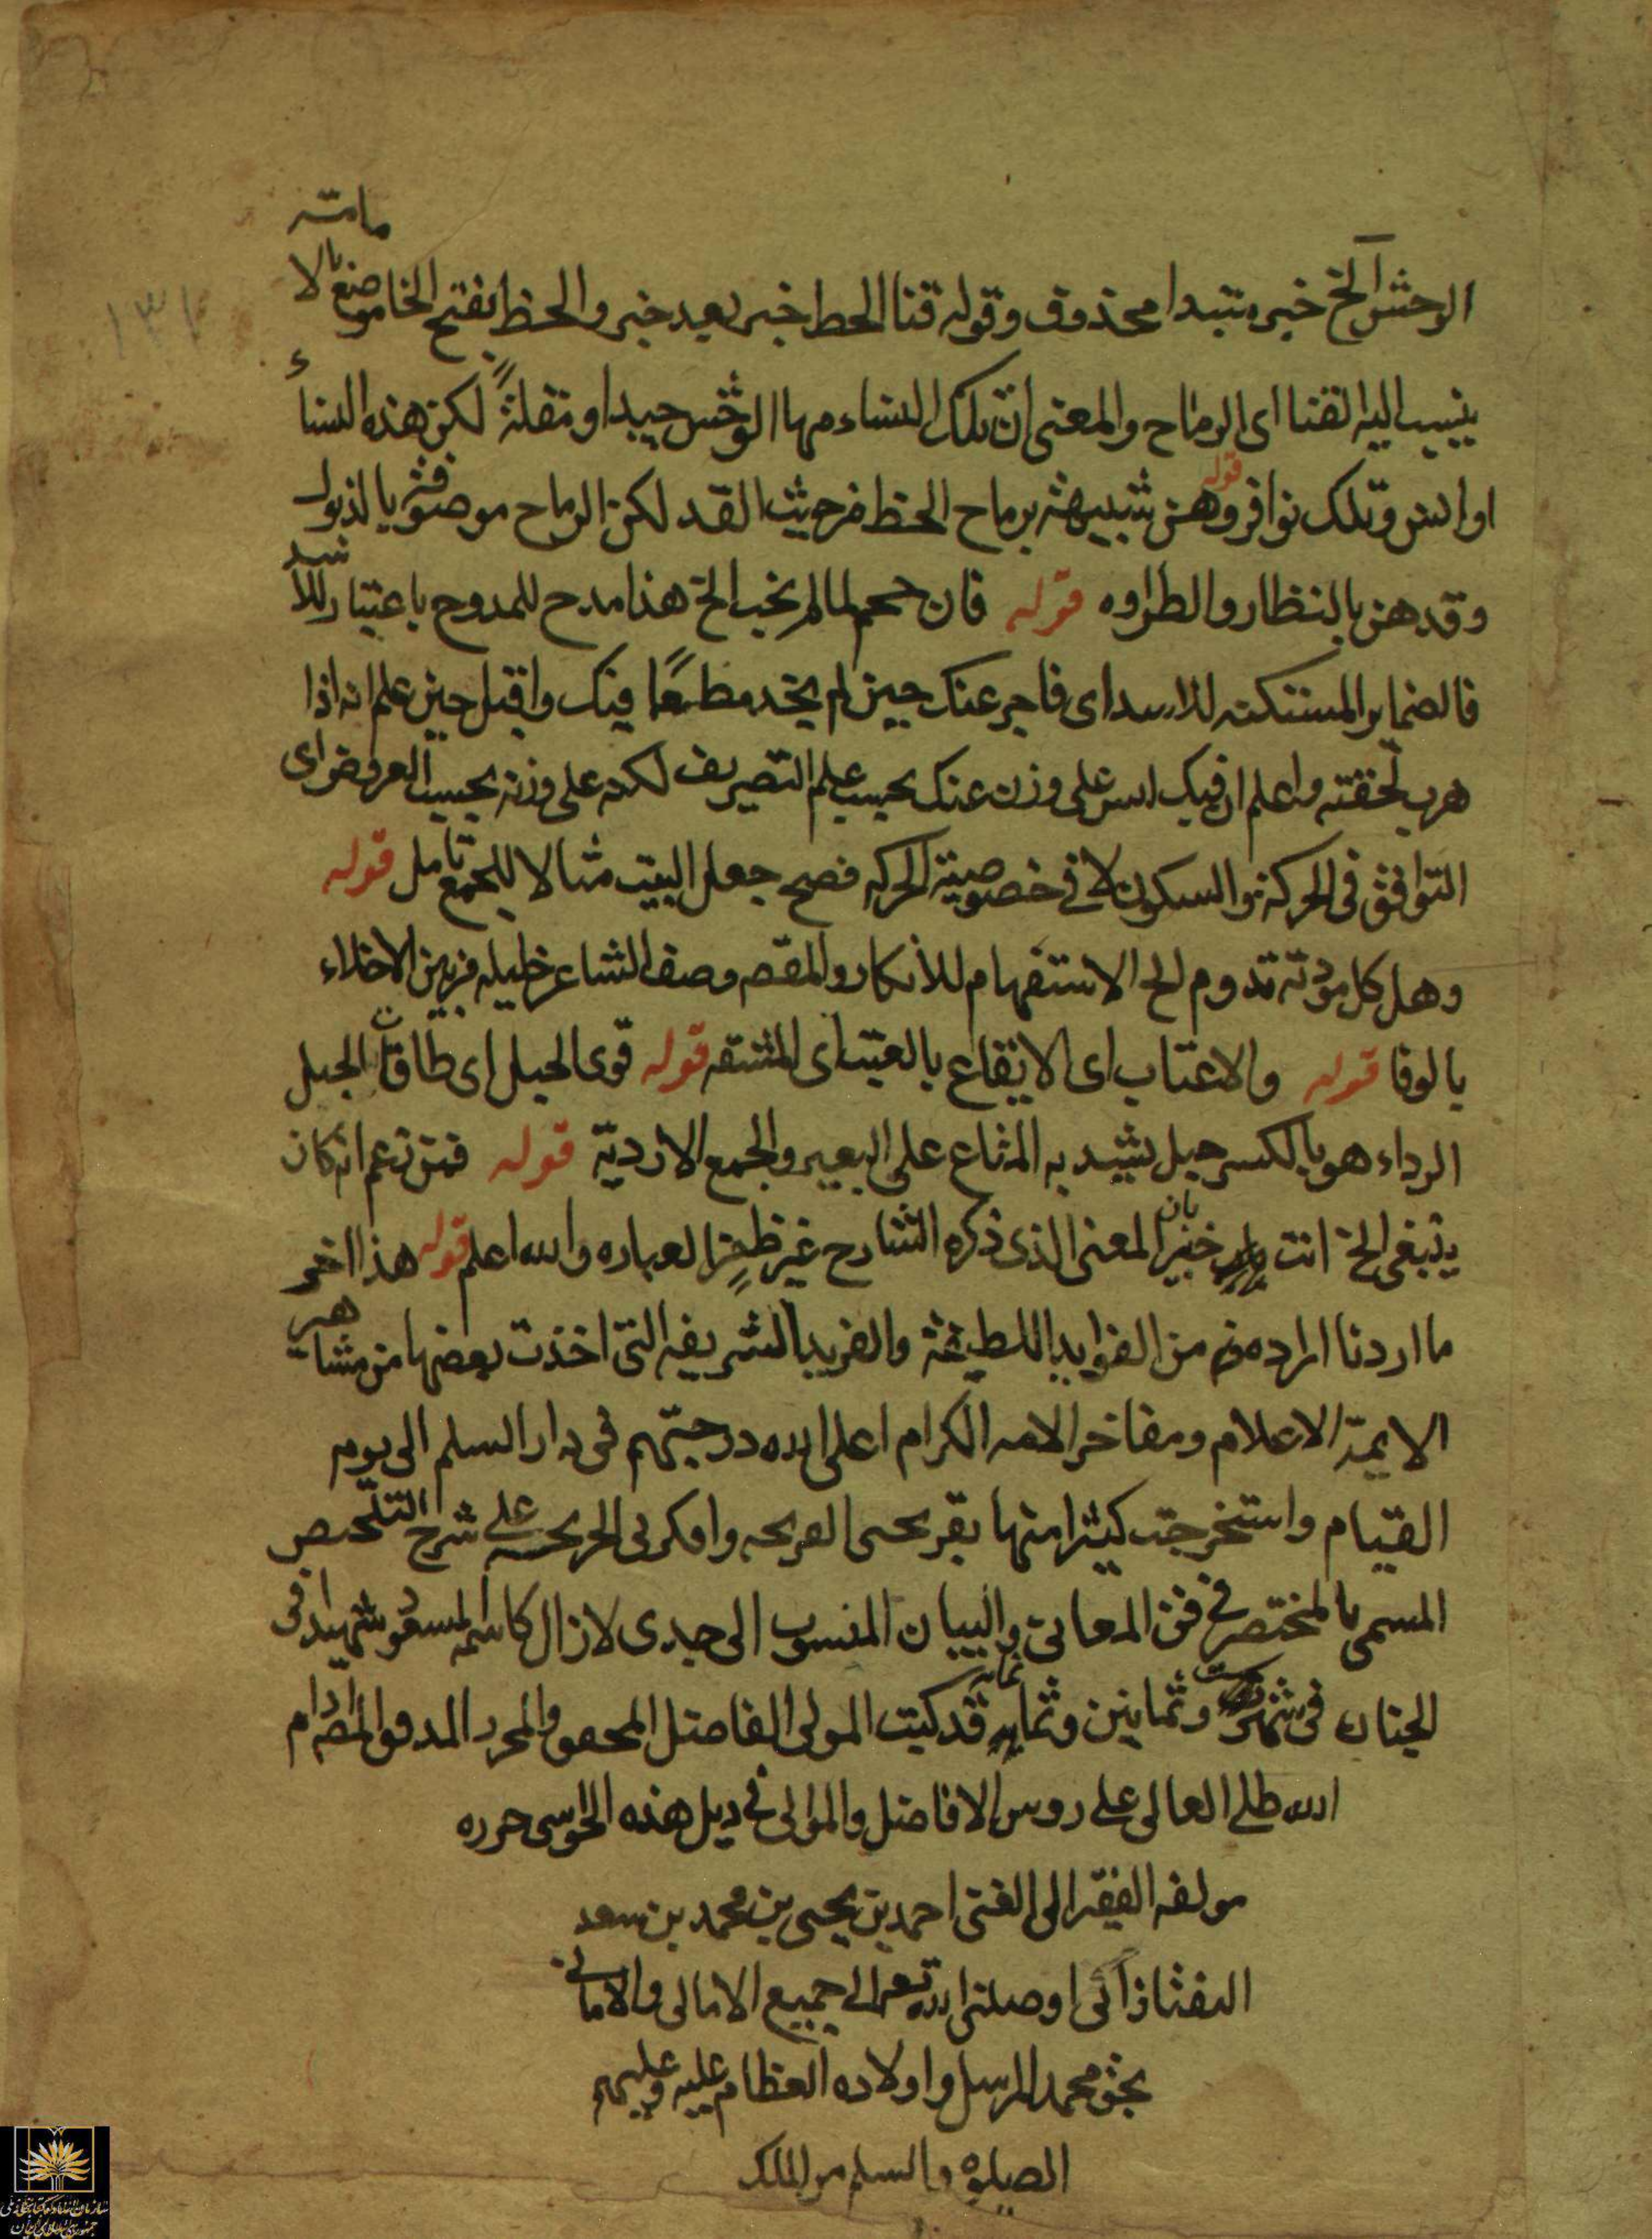 الوحش الخ خبر مبتدا محذوف وقوله قنا الخط خبر بعد خبر والخط بفتح الخا موضع باليمامة
ينسب اليه القنا اى الرماح والمعنى ان تلك النساء مها الوحش جيدا ومقلة لكن هذه النساء
اوانس وتلك نوافر قوله وهن شبيهة برماح الخط من حيث القد لكن الرماح موصوفة بالذبول
وقدهن بالنظار والطراوه قوله فان حجم لما لم يخب الخ هذا مدح للممدوح باعتبار للاسد
فالضماير المستكنه للاسد اى فاحجم عنك حين لم يجد مطمعا فيك واقبل حين علم انه اذا
هرب لحقته واعلم ان فيك ليس على وزن عنك بحسب علم التصريف لكنه على وزنه بحسب العروض اى
التوافق فى الحركة والسكون لا فى خصوصية الحركه فصح جعل البيت مثالا للجمع تامل قوله
وهل كل مودته تدوم الخ الاستفهام للانكار والمقصم وصف الشاعر خليله من بين الاخلاء
بالوفا قوله والاعتاب اى الايقاع بالعتب اى المشقه قوله قوى الحبل اى طاقات الحبل
الرداء هو بالكسر حبل يشد به المتاع على البعير والجمع الاردية قوله فمن زعم انه كان
ينبغى الخ انت خبير بان المعنى الذى ذكره الشارح غير ظ من العباره والله اعلم قوله هذا اخر
ما اردنا ايراده من الفوايد اللطيفة والفريد الشريفه التى اخذت بعضها من مشاهير
الايمة الاعلام ومفاخر الامه الكرام اعلى الله درجتهم فى دار السلم الى يوم
القيام واستخرجت كيثرا منها بقريحتى القريحه وافكرتى الجريحه على شرح التلخيص
المسمى بالمختصر فى فن المعانى والبيان المنسوب الى جدى لازال كاسمه مسعودا شهيدا فى
الجنان فى شهر ست وثمانين وثمانمايه قد كتبت المولى الفاضل المحقق والمحرر المدقق ادام
الله ظله العالى على روس الافاضل والموالى فى ذيل هذه الحواشى حرره
مولفه الفقير الى الغنى احمد بن يحيى بن محمد بن سعد
التفتازانى اوصلنى الله تعالى الى جميع الامالى والامانى
بحق محمد المرسل واولاده العظام عليه وعليهم
الصلوة والسلم من الملك
١٣١